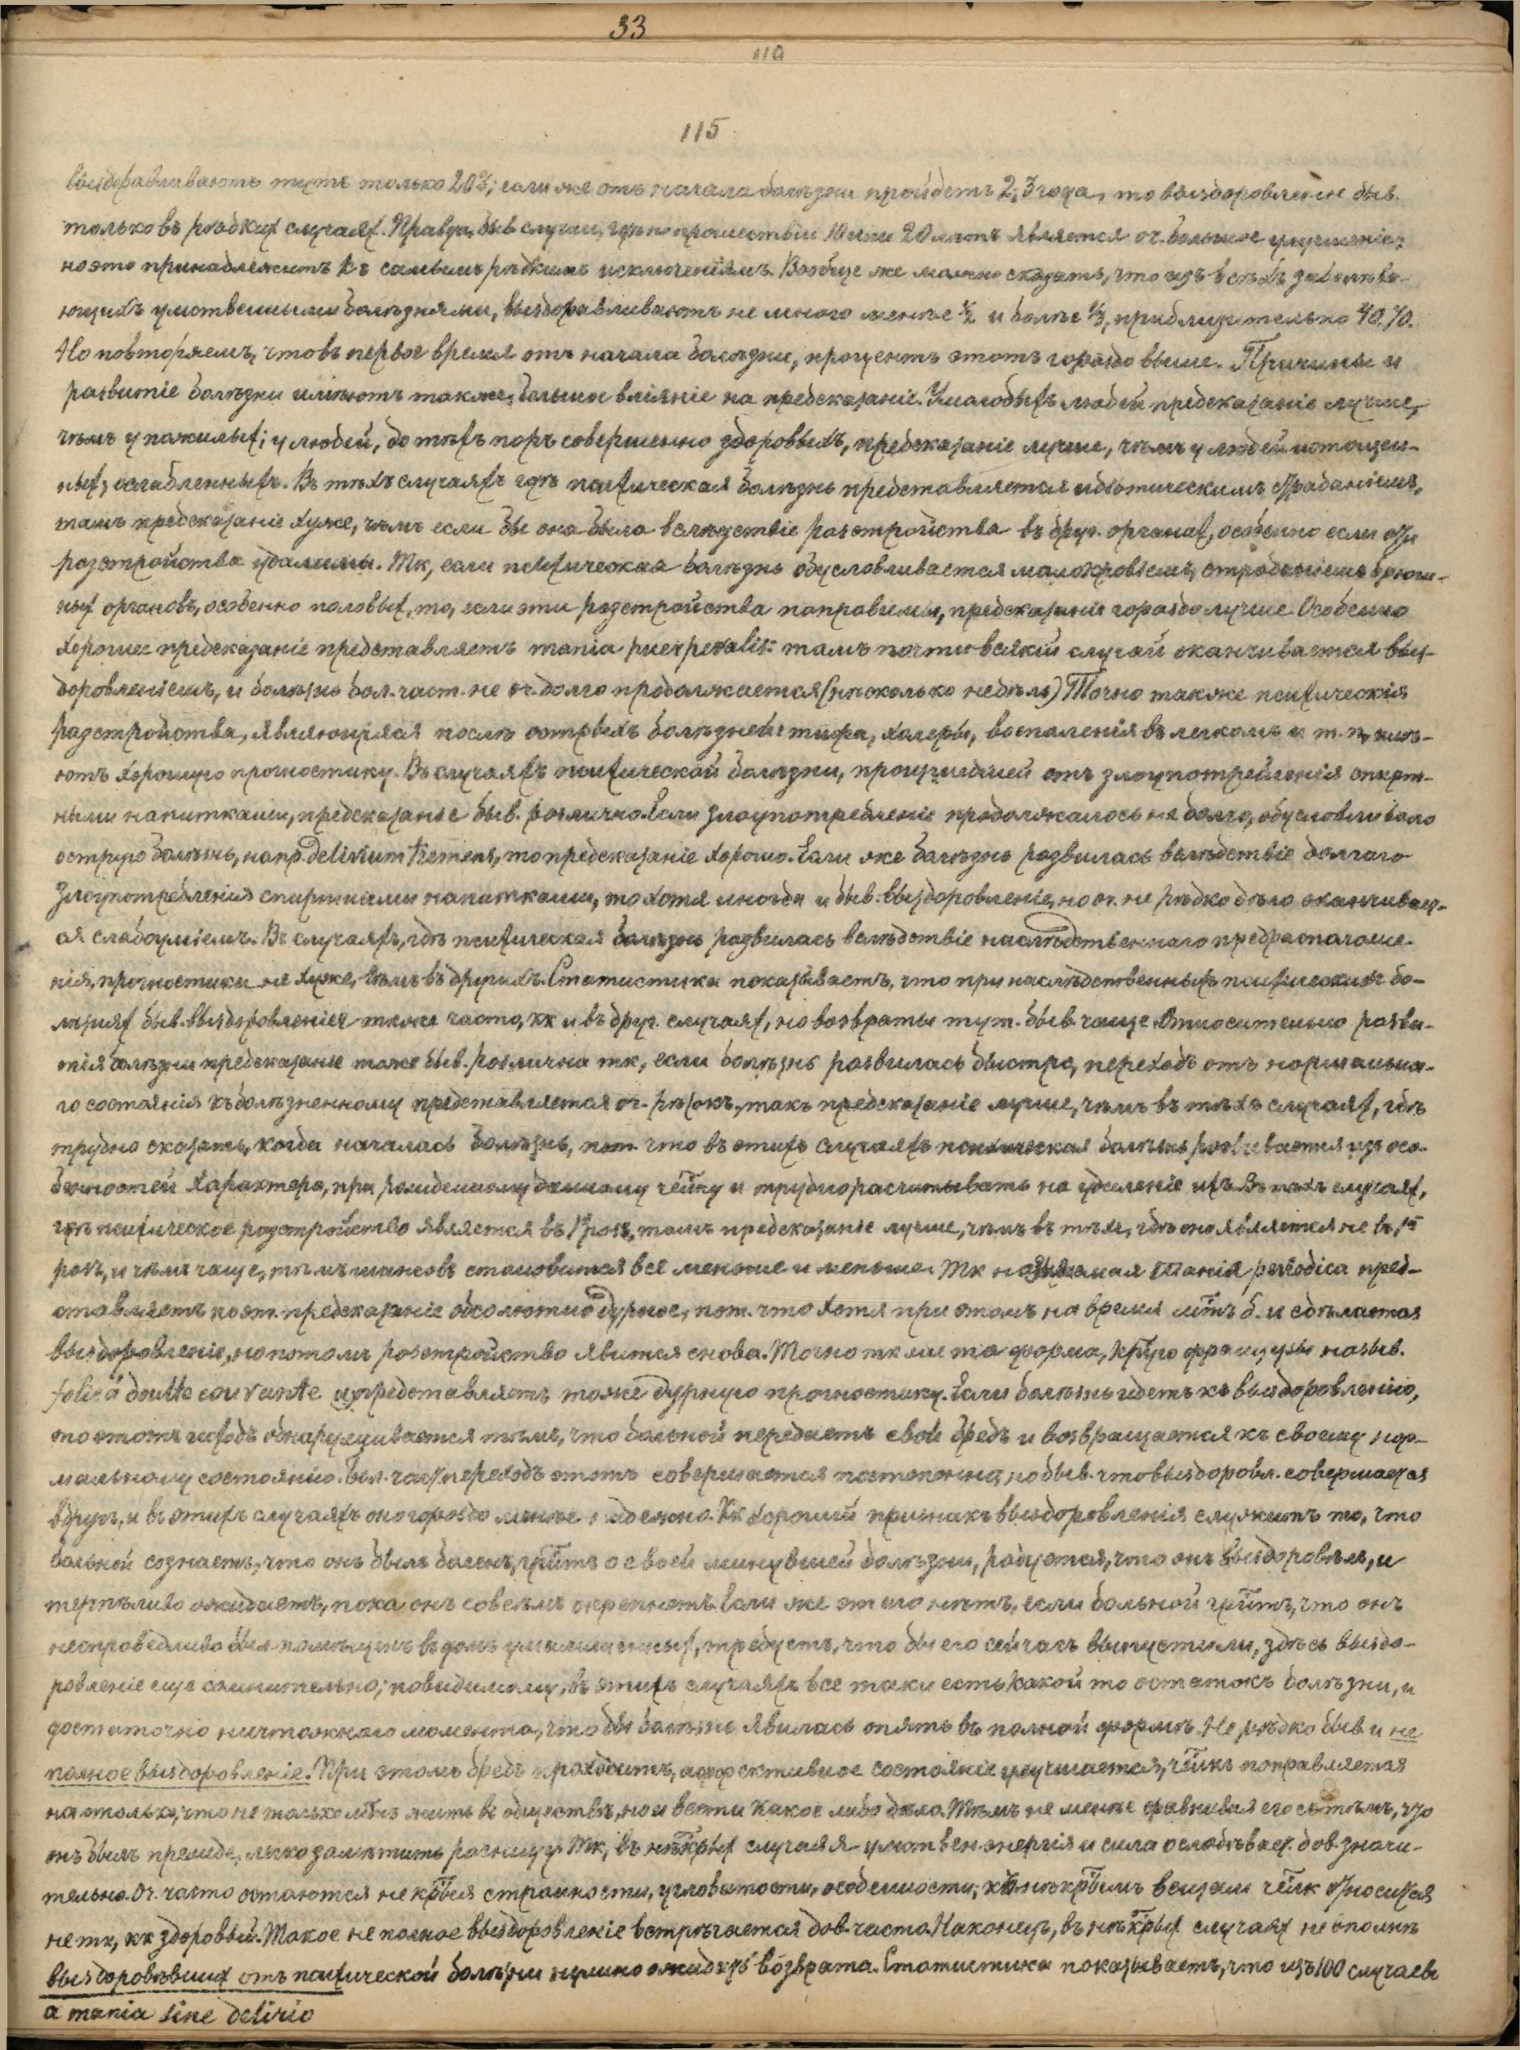 33
110
115
выздоравливаютъ тутъ только 20%; если же отъ начала болѣзни пройдетъ 2, 3 года, то выздоровленіе быв.
только въ рѣдких случаях. Правда, быв случаи, гдѣ по прошествіи 10 или 20 лѣтъ является оч. большое улучшеніе;
но это принадлежитъ къ самымъ рѣдкимъ исключеніямъ. Вообще же можно сказать, что изъ всѣхъ заболѣва-
ющихъ умственными болѣзнями, выздоравливаютъ не много менѣе ½ и болѣе ⅓, приблизительно 40%.
Но повторяемъ, что въ первое время отъ начала болѣзни, процентъ этотъ гораздо выше. Причины и
развитіе болѣзни имѣютъ также большое вліяніе на предсказаніе. У молодыхъ людей предсказаніе лучше,
чѣмъ у пожилых; у людей, до тѣхъ поръ совершенно здоровыхъ, предсказаніе лучше, чѣмъ у людей истощен-
ных, ослабленныхъ. Въ тѣхъ случаяхъ гдѣ психическая болѣзнь представляется идіопатическимъ страданіемъ,
тамъ предсказаніе хуже, чѣмъ если бы она была вслѣдствіе разстройства въ друг. органах, особенно если эти
разстройства удалимы. Тк, если психическая болѣзнь обусловливается малокровіемъ, страданіемъ брюш-
ных органовъ, особенно половых, то, если эти разстройства поправимы, предсказаніе гораздо лучше. Особенно
хорошее предсказаніе представляетъ mania puerperalis: тамъ почти всякій случай оканчивается выз-
доровленіемъ, и болѣзнь бол. част. не оч. долго продолжается (нѣсколько недѣль). Точно также психическія
разстройства, являющіяся послѣ острыхъ болѣзней: тифа, холеры, воспаленія въ легкомъ и т. п., имѣ-
ютъ хорошую прогностику. Въ случаяхъ психической болѣзни, происшедшей отъ злоупотребленія спирт-
ными напитками, предсказаніе быв. различно. Если злоупотребленіе продолжалось не долго, обусловливало
острую болѣзнь, напр. delirium tremens, то предсказаніе хорошо. Если же болѣзнь развилась вслѣдствіе долгаго
злоупотребленія спиртными напитками, то хотя иногда и быв. выздоровленіе, но оч. не рѣдко дѣло оканчивает-
ся слабоуміемъ. Въ случаяхъ, гдѣ психическая болѣзнь развилась вслѣдствіе наслѣдственнаго предрасположе-
нія, прогностика не хуже, чѣмъ въ другихъ. Статистика показываетъ, что при наслѣдственныхъ психическихъ бо-
лѣзнях быв. выздоровленіе также часто, кк и въ друг. случаях, но возвраты тут. быв. чаще. Относительно разви-
тія болѣзни предсказаніе тоже быв. различна тк, если болѣзнь развилась быстро, переходъ отъ нормальна-
го состоянія къ болѣзненному представляется оч. рѣзокъ, такъ предсказаніе лучше, чѣмъ въ тѣхъ случаях, гдѣ
трудно сказать, когда началась болѣзнь, пот. что въ этихъ случаяхъ психическая болѣзнь развивается изъ осо-
бенностей характера, при рожденному данному члку и трудно расчитывать на удаленіе ихъ. Въ тѣхъ случаях,
гдѣ психическое разстройство является въ 1й разъ, тамъ предсказаніе лучше, чѣмъ въ тѣхъ, гдѣ оно является не въ 1й
разъ, и чѣмъ чаще, тѣмъ шансовъ становится все меньше и меньше. Тк называемая Mania periodica пред-
ставляетъ поэт. предсказаніе абсолютно дурное, пот. что хотя при этомъ на время мтъ б. и сдѣлается
выздоровленіе, но потомъ разстройство явится снова. Точно тк же та форма, кртую французы назыв.
folie à double couvante представляетъ тоже дурную прогностику. Если болѣзнь идетъ къ выздоровленію,
то этотъ исходъ обнаруживается тѣмъ, что больной передаетъ свой бредъ и возвращается къ своему нор-
мальному состоянію. Бол. част. переходъ этотъ совершается постепенно, но быв. что выздоровл. совершается
вдругъ, и въ этихъ случаяхъ оно гораздо менѣе надежно. Кк хорошій признакъ выздоровленія служитъ то, что
больной сознаетъ, что онъ былъ боленъ, гритъ о своей минувшей болѣзни, радуется, что онъ выздоровѣлъ, и
терпѣливо ожидаетъ, пока онъ совсѣмъ окрепнетъ. Если же этого нѣтъ, если больной гритъ, что онъ
несправедливо былъ помѣщенъ въ домъ умалишенных, требуетъ, что бы его сейчасъ выпустили, здѣсь выздо-
ровленіе еще сомнительно; повидимому, въ этихъ случаяхъ все таки есть какой то остатокъ болѣзни, и
достаточно ничтожнаго момента, что бы болѣзнь явилась опять въ полной формѣ. Не рѣдко быв и не
полное выздоровленіе. При этомъ бредъ проходитъ, аффективное состояніе улучшается, члкъ поправляется
на столько, что не только мтъ жить въ обществѣ, но и вести какое либо дѣло. Тѣмъ не менѣе сравнивая его съ тѣмъ, что
онъ былъ прежде, легко замѣтить разницу. Тк, въ нѣкрых случаяхъ умствен. энергія и сила ослабѣвает. дов. значи-
тельно. Оч. часто остаются не крыя странности, угловатости, особенности; къ нѣкрымъ вещам члк относится
не тк, кк здоровый. Такое не полное выздоровленіе встрѣчается дов. часто. Наконецъ, въ нѣкрых случаях не вполнѣ
выздоровѣвших отъ психической болѣзни нужно ожидать возврата. Статистика показываетъ, что изъ 100 случаевъ
а mania sine delirio